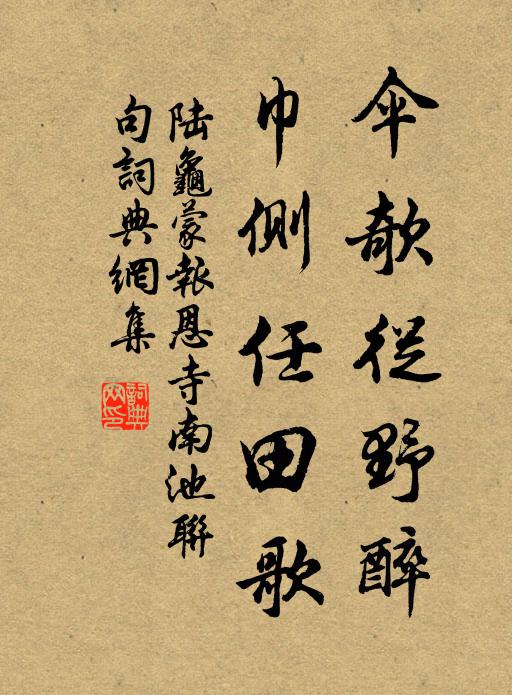 傘欹從野醉
巾側任田歌
陸龜蒙報恩寺南池聯
句詞典網集
詞典
网印